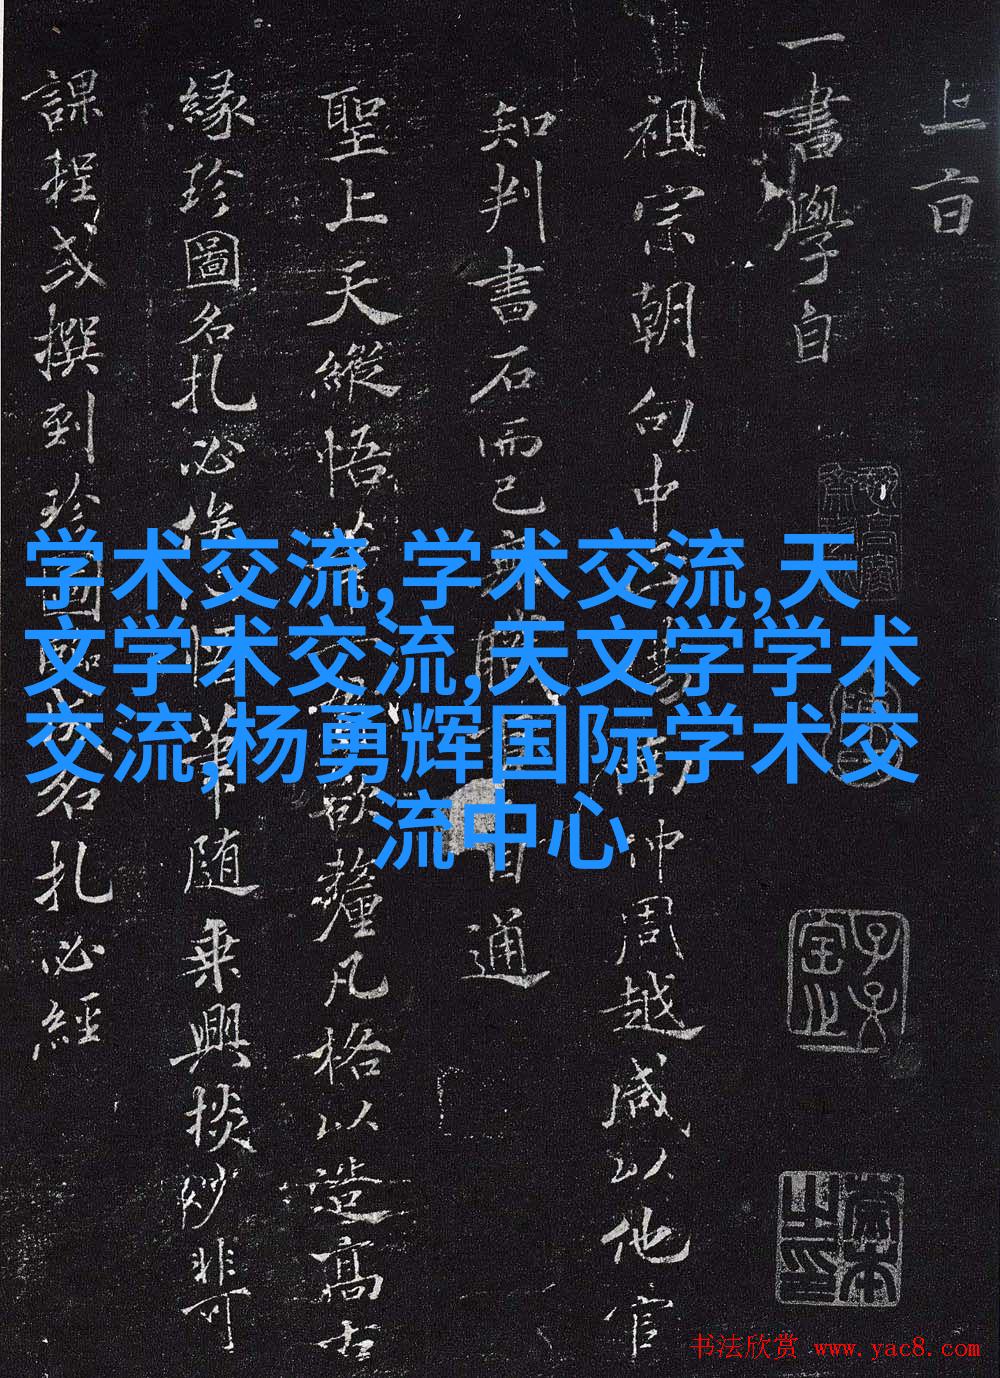 上言
一書學自
祖宗朝句中正
冲周越咸以他官
知判書石而已
自通
聖上天縱悟
欲釐凡格以造高古
緣珍圖名札必
筆随乗興掞妙非可
課程或撰到珍圖
名札必經
学术交流,学术交流,天
文学术交流,天文学学术
交流,杨勇辉国际学术交
流中心
书法欣赏 www.yac8.com